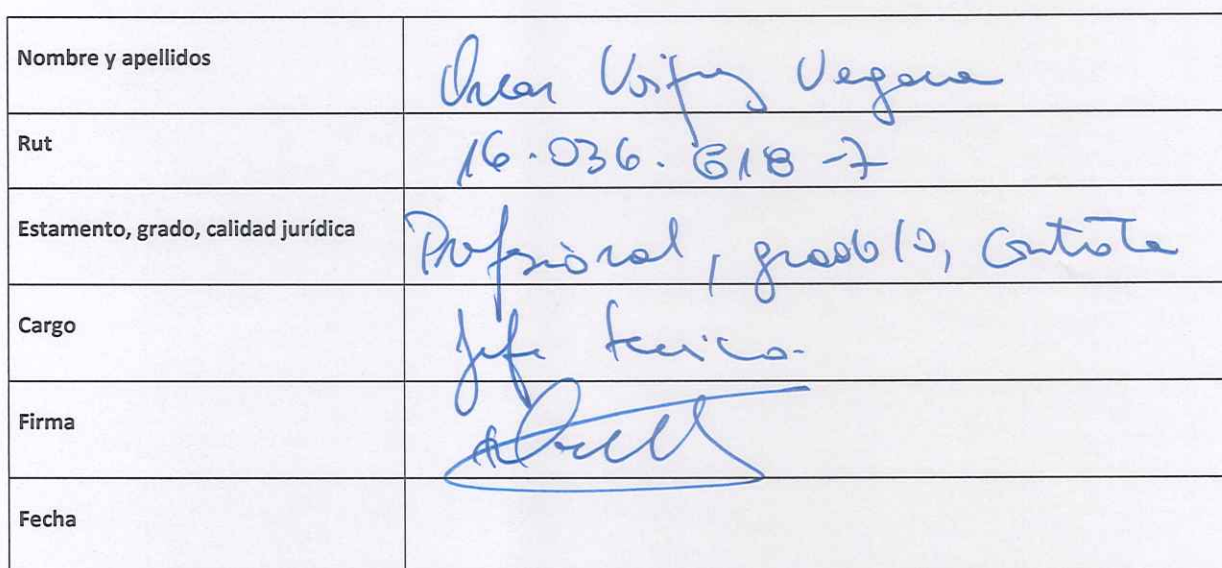 Nombre y apellidos
Vergara
Rut 16.036.618-7
Estamento, grado, calidad jurídica Profesional, grado 10, Contrata
Cargo Jefe técnico.
Firma
Fecha